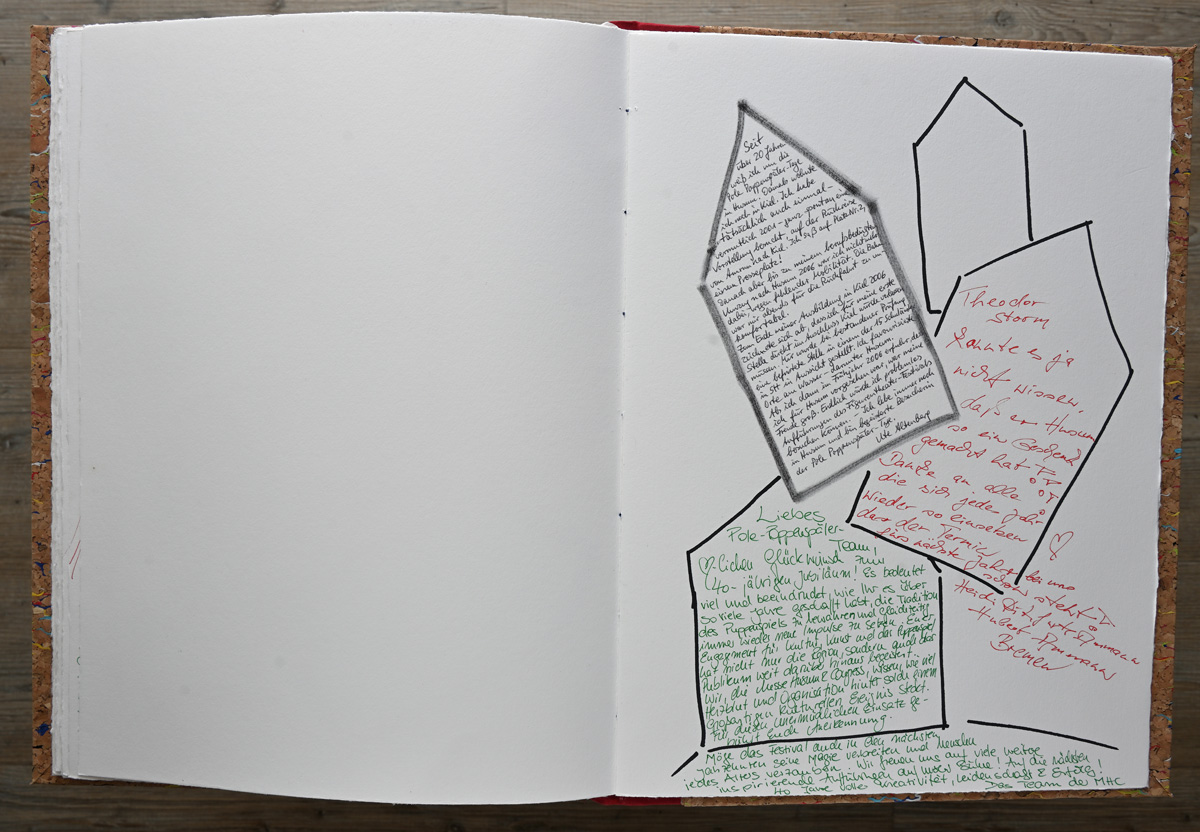 Seit
über 20 Jahren
weiß ich um die
Pole Poppenspäler-Tage
in Husum. Damals wohnte
ich noch in Kiel. Ich habe
tatsächlich auch einmal –
vermutlich 2001 – ganz spontan eine
Vorstellung besucht auf der Rückreise
von Amrum nach Kiel. Ich saß auf Platz Nr. 2,
einem Presseplatz!
Danach aber bis zu meinem berufsbedingten
Umzug nach Husum 2006 war ich nicht mehr
dabei wegen fehlender Mobilität. Die Bahn
war mir abends für die Rückfahrt zu un-
komfortabel.
Zum Ende meiner Ausbildung in Kiel 2006
zeichnete sich ab, dass ich für meine erste
Stelle direkt im Anschluss Kiel würde verlassen
müssen. Mir wurde bei bestandener Prüfung
eine befristete Stelle in einem der 15 schönsten
Orte am Wasser – darunter Husum –
in Aussicht gestellt. Ich favorisierte
Als ich dann im Frühjahr 2006 erfuhr, dass
ich für Husum vorgesehen war, war meine
Freude groß. Endlich würde ich problemlos
Aufführungen des Figurentheater-Festivals
besuchen können. Ich lebe immer noch
in Husum und bin begeisterte Besucherin
der Pole Poppenspäler-Tage.
Ute Altenberg
Theodor
Storm
konnte es ja
nicht wissen,
daß er Husum
so ein Geschenk
gemacht hat
Danke an alle
die sich jedes Jahr
wieder so einsetzen
dass der Termin
fürs nächste Jahr bei uns
schon steht
Heidi
Hubert
Bremen
Liebes
Pole-Poppenspäler-
Team!
♡lichen Glückwunsch zum
40-jährigen Jubiläum! Es bedeutet
viel und beeindruckt, wie Ihr es über
so viele Jahre geschafft habt, die Tradition
des Puppenspiels zu bewahren und gleichzeitig
immer wieder neue Impulse zu setzen. Euer
Engagement für Kultur, Kunst und das Puppenspiel
hat nicht nur die Region, sondern auch das
Publikum weit darüber hinaus begeistert.
Wir, die Messe Husum & Congress, wissen, wie viel
Herzblut und Organisation hinter solch einem
großartigen kulturellen Ereignis steckt.
Für diesen unermüdlichen Einsatz ge-
bührt Euch Anerkennung.
Möge das Festival auch in den nächsten
Jahrzehnten seine Magie verbreiten und Menschen
jedes Alters verzaubern. Wir freuen uns auf viele weitere
inspirierende Aufführungen auf unserer Bühne! Auf die nächsten
40 Jahre voller Kreativität, Leidenschaft & Erfolg!
Das Team der MHC